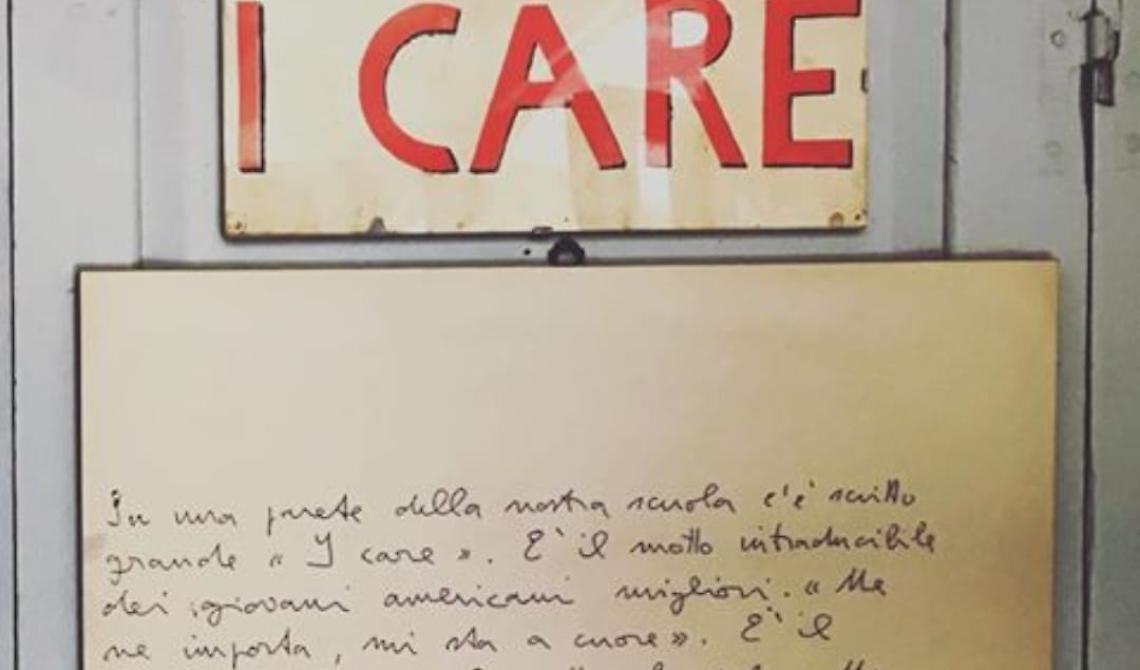 I CARE
In una parete della nostra scuola c'è scritto
grande « I care ». E' il motto intraducibile
dei giovani americani migliori. « Me
ne importa, mi sta a cuore ». E' il